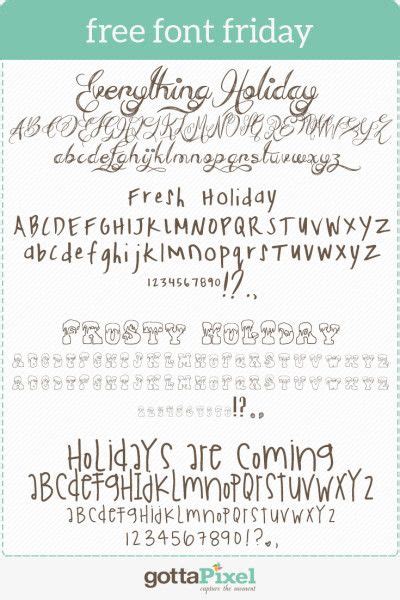 free font friday
Everything Holiday
ABCDEFGHIJKLMNOPQRSTUVWXYZ
abcdefghijklmnopqrstuvwxyz
Fresh Holiday
ABCDEFGHIJKLMNOPQRSTUVWXYZ
abcdefghijklmnopqrstuvwxyz
1234567890!?.,
FROSTY HOLIDAY
ABCDEFGHIJKLMNOPQRSTUVWXYZ
ABCDEFGHIJKLMNOPQRSTUVWXYZ
1234567890!?.,
Holidays are Coming
aBcDefGHIJKLMNOPQRSTUVWXYZ
aBcDefGHIJKLMNOPQRSTUVWXYZ
1234567890!?.,
gottaPixel
capture the moment